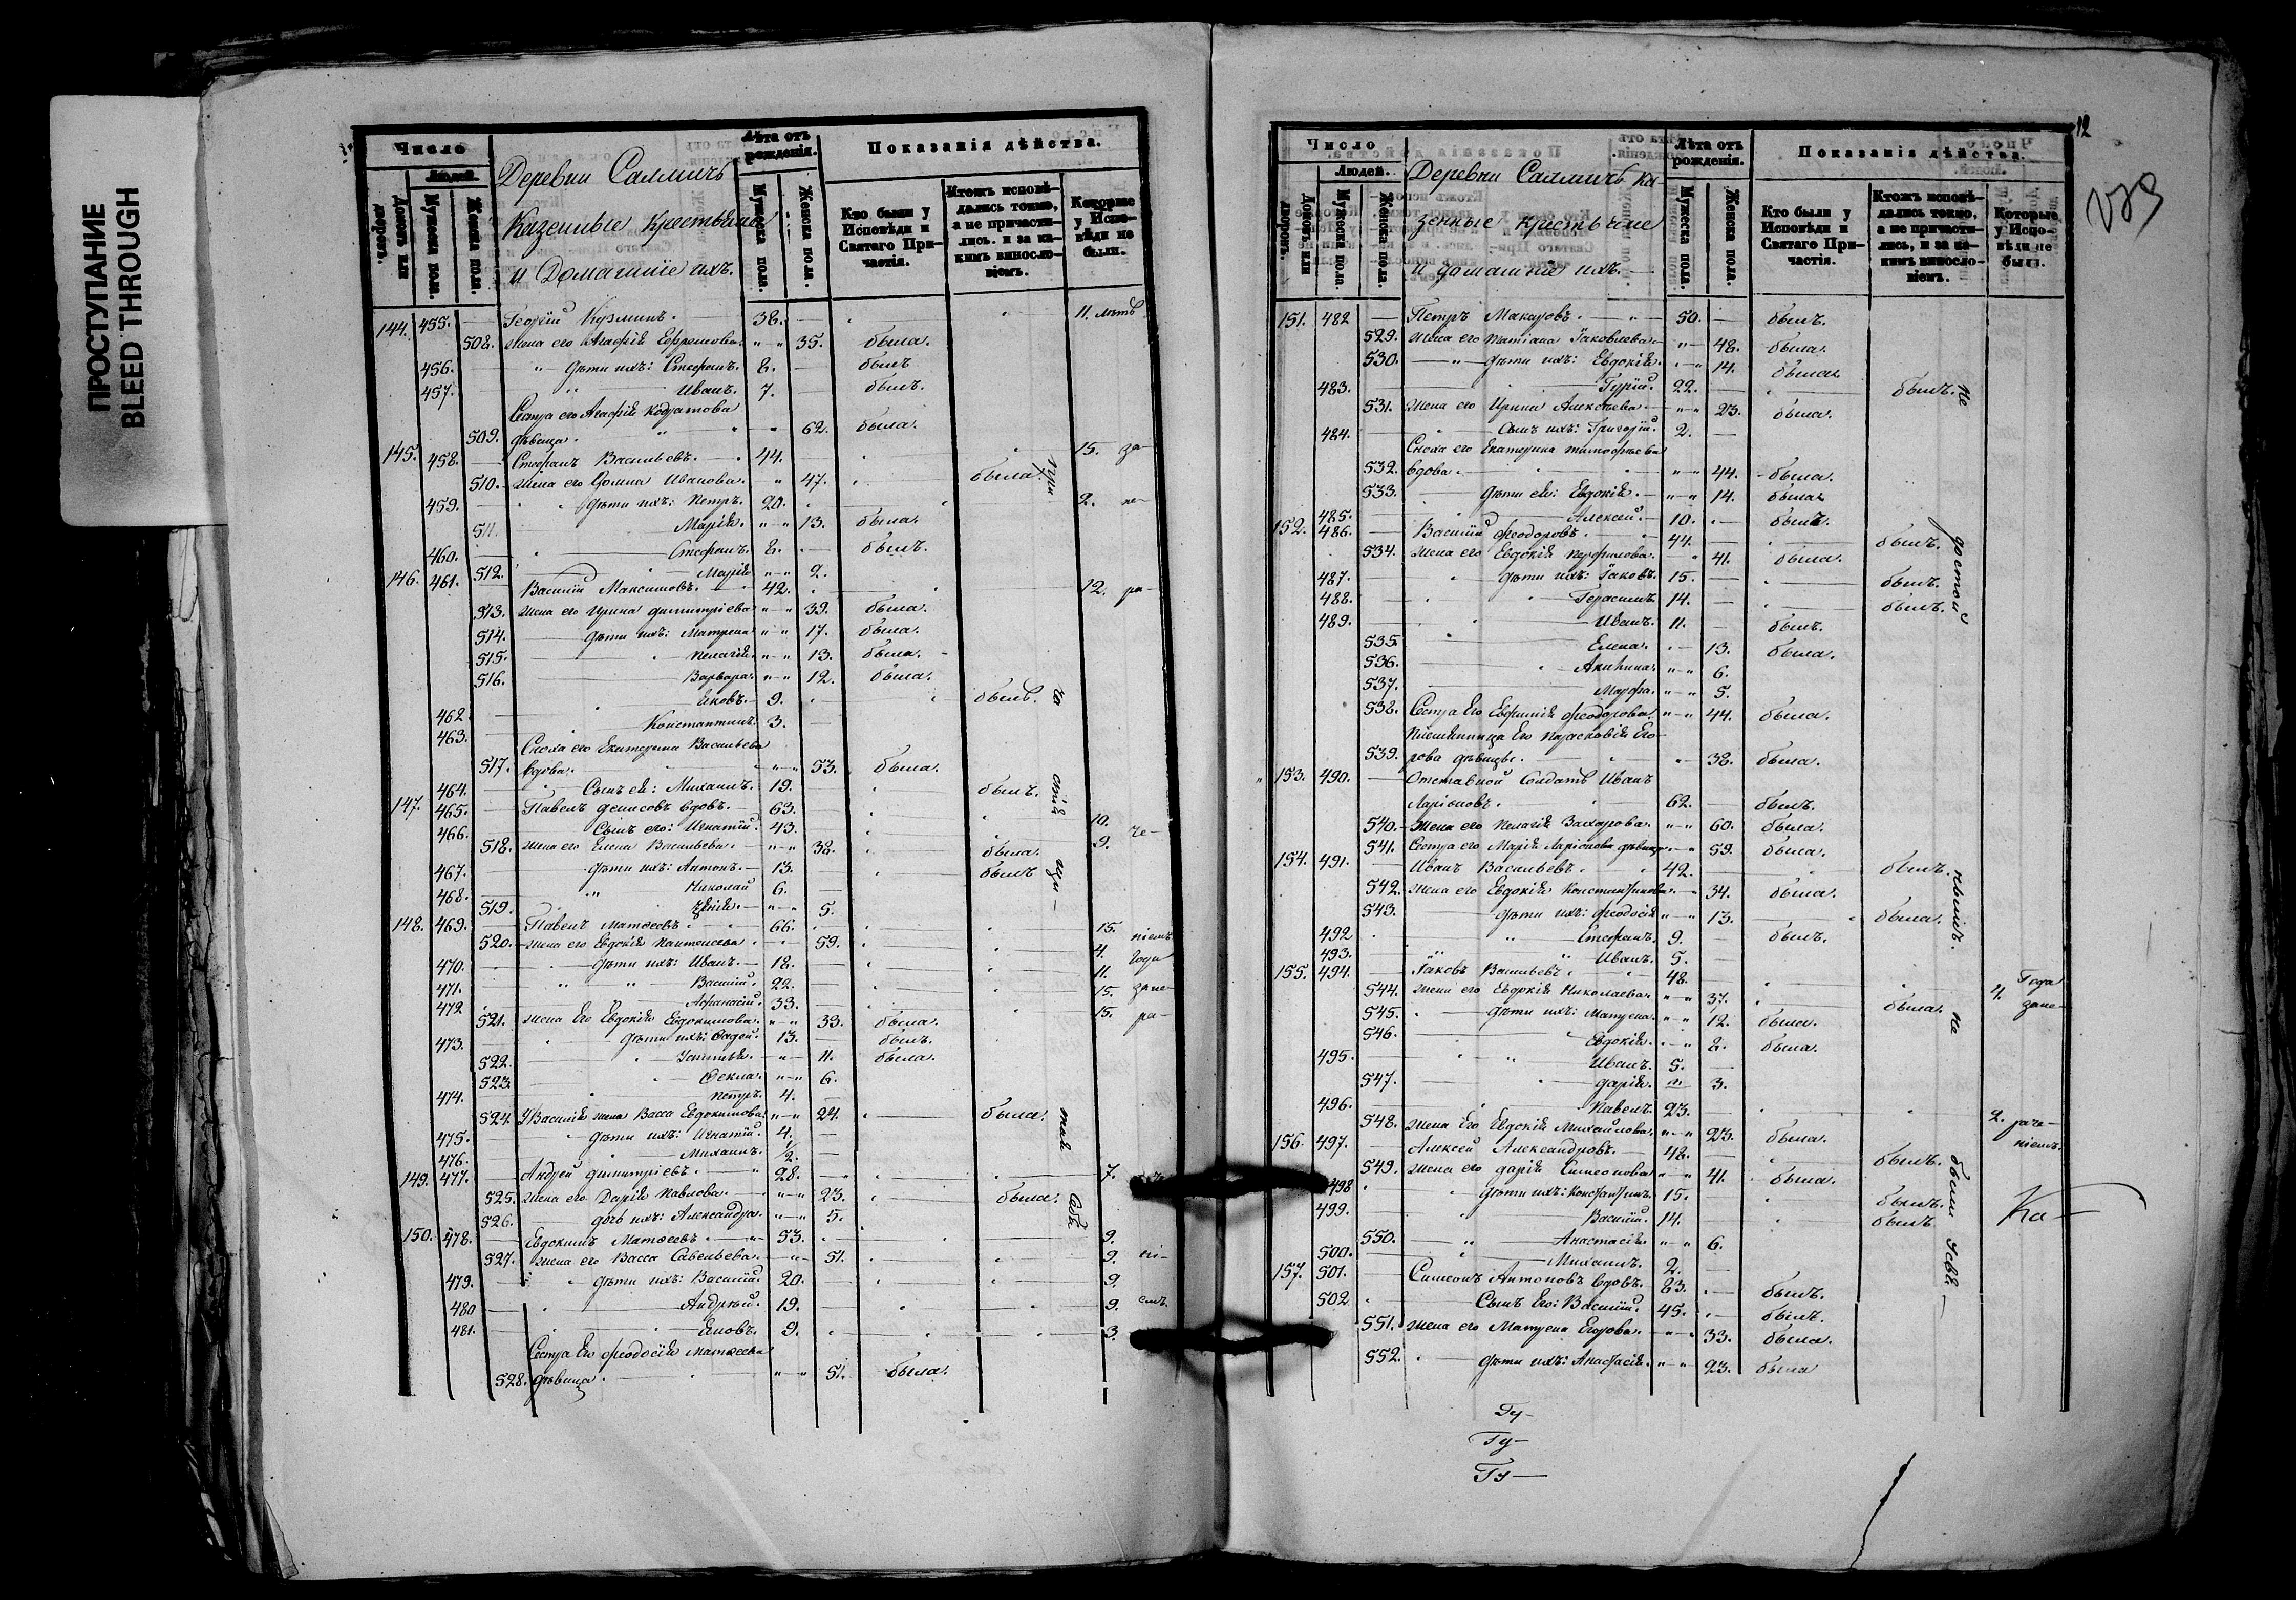 ПРОСТУПАНИЕ
BLEED THROUGH
Число
Людей.
Домовъ или дворовъ.
Мужеска пола.
Женска пола.
Деревни Саллмихъ
Казенные крестьяне
и Домашніе ихъ.
Лѣта отъ рожденія.
Мужеска пола.
Женска пола.
Показанія дѣйства.
Кто были у Исповѣди и Святаго Причастія.
Ктожъ исповѣдались токмо, а не причастились, и за какимъ винословіемъ.
Которые у Исповѣди не были.
144. 455. Георгій Кузминъ. 38. 11. лѣтъ
508. жена его Агафія Ефремова. 35. была.
456. дѣти ихъ: Стефанъ. 8. былъ
457. Иванъ. 7. былъ.
Сестра его Агафія Кодратова
509. дѣвица. 62. была.
145. 458. Стефанъ Васильевъ. 44. 15. за
510. жена его Домна Иванова. 47. была. при
459. дѣти ихъ: Петръ. 20. 2. не-
511. Марія. 13. была.
460. Стефанъ. 8. былъ.
512. Марія 2.
146. 461. Василій Максимовъ. 42. 12. ра-
513. жена его Ирина Димитріева 39. была.
514. дѣти ихъ: Матрена 17. была.
515. Пелагія. 13. была.
516. Варвара. 12. была.
462. Яковъ. 9. былъ. ча
463. Константинъ. 3.
Сноха его Екатерина Васильева
517. вдова. 53. была.
464. Сынъ ея: Михаилъ. 19. былъ. стія
147. 465. Павелъ Денисовъ вдовъ. 63. 10.
466. Сынъ его: Игнатій. 43. 9. че-
518. жена его Елена Васильева. 38. была.
467. дѣти ихъ: Антонъ. 13. былъ
468. Николай 6.
519. 5.
148. 469. Павелъ Матѳеевъ 66. 15.
520. жена его Евдокія 59. 4. ніемъ
470. дѣти ихъ: Иванъ. 18. 11. Года
471. Василій. 22. 15. зане-
472 Афанасій. 33. 15. ра-
521. жена Его Евдокія Евдокимова. 33. была.
473. дѣти ихъ: Фадей. 13. былъ.
522. Устинья. 11. была.
523. Ѳекла. 6.
474. Петръ. 4.
524. У Василія жена Васса Евдокимова. 24. была.
475. дѣти ихъ: Игнатій. 4.
476. Михаилъ. 1/2.
149. 477. Андрей Димитріевъ. 28. 7.
525. жена его Дарія Павлова. 23. была.
526. дочь ихъ: Александра. 5.
150. 478. Евдокимъ Матѳеевъ 53. 9.
527. жена его Васса Савельева. 51. 9. ні-
479. дѣти ихъ: Василій. 20. 9.
480 Андрей. 19. 9. емъ.
481. Яковъ. 9. 3.
Сестра Его Феодосія Матѳеева
528. дѣвица. 51. была.
12
Число
Людей.
Домовъ или дворовъ.
Мужеска пола.
Женска пола.
Деревни Саллмихъ ка-
зенные крестьяне
и домашніе ихъ.
Лѣта отъ рожденія.
Мужеска пола.
Женска пола.
Показанія дѣйства.
Кто были у Исповѣди и Святаго Причастія.
Ктожъ исповѣдались токмо, а не причастились, и за какимъ винословіемъ.
Которые у Исповѣди не были.
151. 482 Петръ Макаровъ. 50. былъ.
529. жена его Татіана Іаковлева. 48. была.
530. дѣти ихъ: Евдокія. 14. была.
483. Гурій. 22. былъ. не
531. жена его Ирина Алексѣева 23. была.
484. Сынъ ихъ: Григорій. 2.
Сноха его Екатерина Тимофѣева
532. вдова. 44. была.
533. дѣти ея: Евдокія. 14. была.
485. Алексѣй. 10. былъ.
152. 486. Василій Феодоровъ. 44. былъ. достой
534. жена его Евдокія Перфилова. 41. была.
487. дѣти ихъ: Іаковъ. 15. былъ.
488. Герасимъ. 14. былъ.
489. Иванъ. 11. былъ.
535. Елена. 13. была.
536. Акилина. 6.
537. Марфа. 5.
538. Сестра Его Евфимія Феодорова. 44. была.
Племянница Его Параскевія Его-
539. рова дѣвица. 38. была.
153. 490. Отставной Солдатъ Иванъ
Ларіоновъ. 62. былъ.
540. жена его Пелагія Захарова. 60. была.
541. Сестра его Марія Ларіонова дѣвица 59. была.
154. 491. Иванъ Васильевъ. 42. былъ. нымъ.
542. жена его Евдокія Константинова. 34. была.
543. дѣти ихъ: Феодосія 13. была.
492 Стефанъ. 9. былъ.
493. Иванъ. 5.
155. 494. Іаковъ Васильевъ. 48. 4. Года
544. жена его Евдокія Николаева. 37. была. зане-
545. дѣти ихъ: Матрена. 12. была.
546. Евдокія. 8. была.
495. Иванъ. 5.
547. Дарія. 3.
496. Павелъ. 23. 2. раче-
548. жена Его Евдокія Михайлова. 23. была. ніемъ.
156. 497. Алексѣй Александровъ. 48. былъ.
549. жена его Дарія Симеонова 41. была.
498 дѣти ихъ: Константинъ. 15. былъ.
499. Василій. 14. былъ Ка-
550. Анастасія 6.
500. Михаилъ. 2.
157. 501. Симеонъ Антоновъ вдовъ. 83. былъ.
502 Сынъ Его: Василій. 45. былъ.
551. жена его Матрена Егорова. 33. была.
552. дѣти ихъ: Анастасія. 23. была
Гу-
Гу-
Гу-